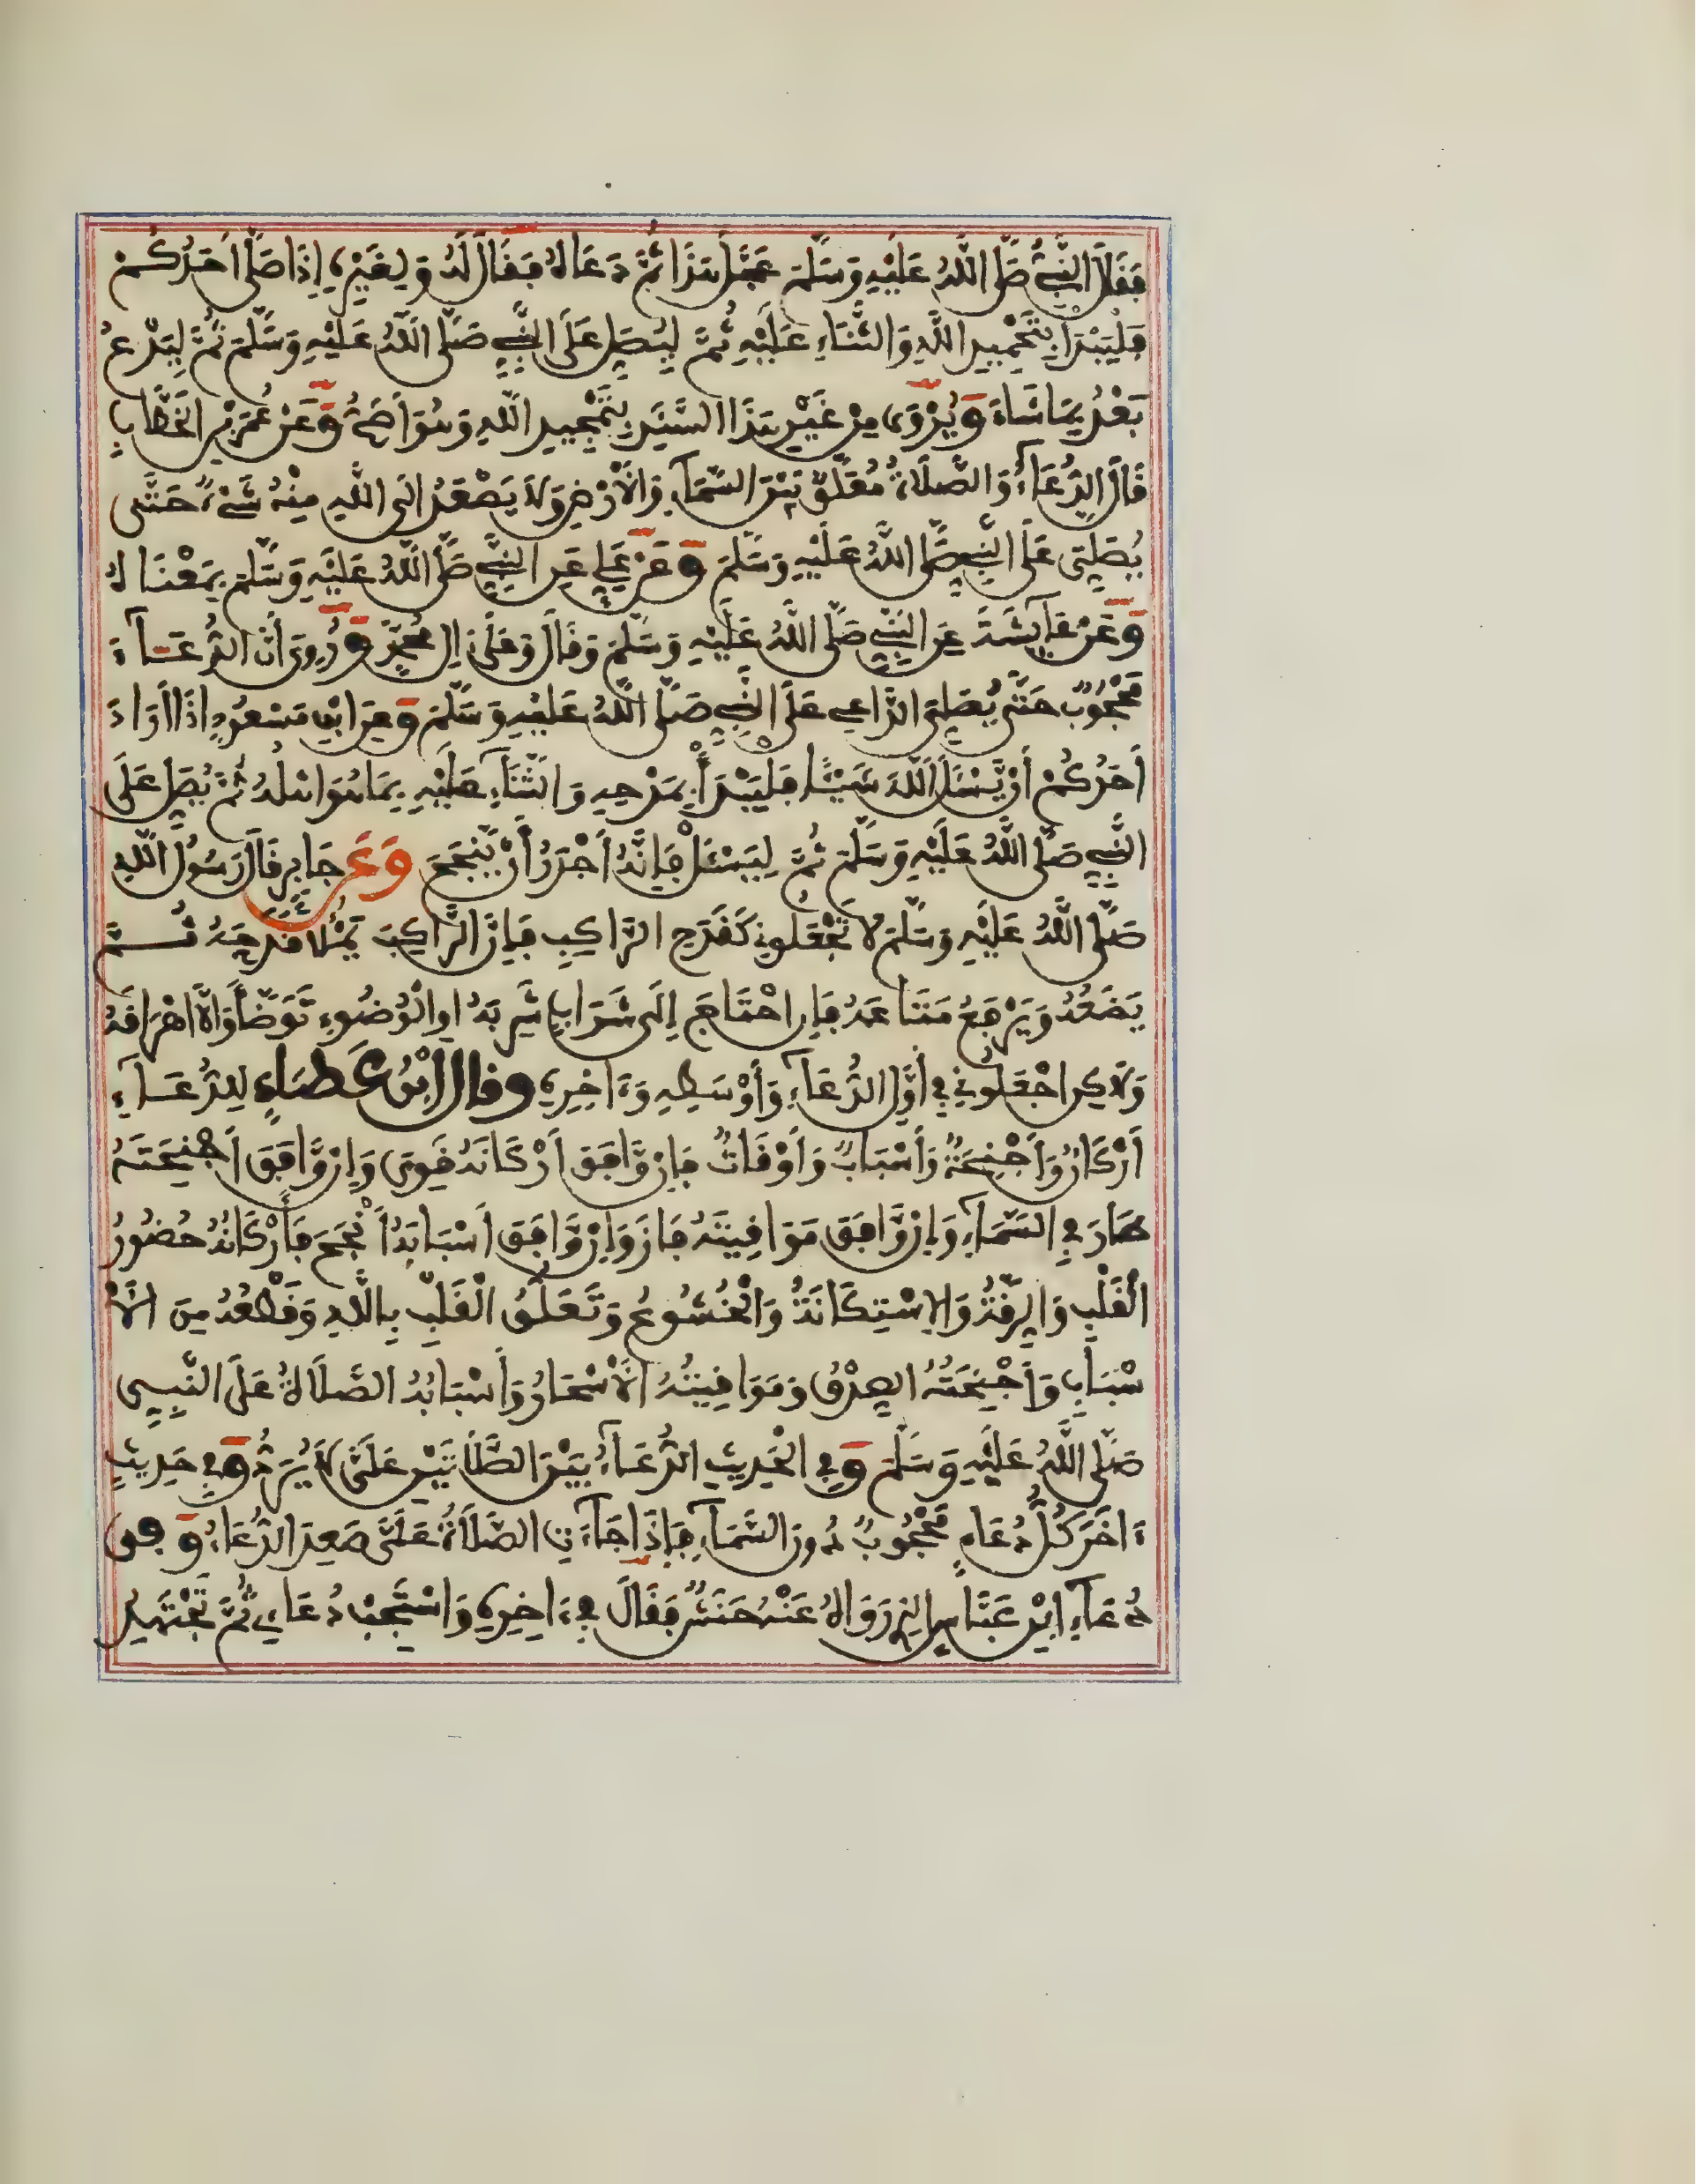 فَقَالَ النَّبِيُّ صَلَّى اللَّهُ عَلَيْهِ وَسَلَّمَ عَجَّلَ هَذَا ثُمَّ دَعَاهُ فَقَالَ لَهُ وَلِغَيْرِهِ إِذَا صَلَّى أَحَدُكُمْ
فَلْيَبْدَأْ بِتَحْمِيدِ اللَّهِ وَالثَّنَاءِ عَلَيْهِ ثُمَّ لْيُصَلِّ عَلَى النَّبِيِّ صَلَّى اللَّهُ عَلَيْهِ وَسَلَّمَ ثُمَّ لْيَدْعُ
بَعْدُ بِمَا شَاءَ وَيُرْوَى مِنْ غَيْرِ هَذَا السَّنَدِ بِتَمْجِيدِ اللَّهِ وَهُوَ أَصَحُّ وَعَنْ عُمَرَ بْنِ الْخَطَّابِ
قَالَ الدُّعَاءُ وَالصَّلَاةُ مُعَلَّقٌ بَيْنَ السَّمَاءِ وَالْأَرْضِ وَلَا يَصْعَدُ إِلَى اللَّهِ مِنْهُ شَيْءٌ حَتَّى
يُصَلَّى عَلَى النَّبِيِّ صَلَّى اللَّهُ عَلَيْهِ وَسَلَّمَ وَعَنْ عَلِيٍّ عَنِ النَّبِيِّ صَلَّى اللَّهُ عَلَيْهِ وَسَلَّمَ بِمَعْنَاهُ
وَعَنْ عَائِشَةَ عَنِ النَّبِيِّ صَلَّى اللَّهُ عَلَيْهِ وَسَلَّمَ وَقَالَ وَعَلَى آلِ مُحَمَّدٍ وَرُوِيَ أَنَّ الدُّعَاءَ
مَحْجُوبٌ حَتَّى يُصَلِّيَ الدَّاعِي عَلَى النَّبِيِّ صَلَّى اللَّهُ عَلَيْهِ وَسَلَّمَ وَعَنِ ابْنِ مَسْعُودٍ إِذَا أَرَادَ
أَحَدُكُمْ أَنْ يَّسْئَلَ اللَّهَ شَيْئًا فَلْيَبْدَأْ بِمَدْحِهِ وَالثَّنَاءِ عَلَيْهِ بِمَا هُوَ أَهْلُهُ ثُمَّ يُصَلِّ عَلَى
النَّبِيِّ صَلَّى اللَّهُ عَلَيْهِ وَسَلَّمَ ثُمَّ لِيَسْئَلْ فَإِنَّهُ أَجْدَرُ أَنْ يَّنْجَحَ وَعَنْ جَابِرٍ قَالَ رَسُولُ اللَّهِ
صَلَّى اللَّهُ عَلَيْهِ وَسَلَّمَ لَا تَجْعَلُونِي كَقَدَحِ الرَّاكِبِ فَإِنَّ الرَّاكِبَ يَمْلَأُ قَدَحَهُ ثُمَّ
يَضَعُهُ وَيَرْفَعُ مَتَاعَهُ فَإِنِ احْتَاجَ إِلَى شَرَابٍ شَرِبَهُ أَوِ الْوُضُوءِ تَوَضَّأَ وَإِلَّا أَهْرَاقَهُ
وَلَكِنِ اجْعَلُونِي فِي أَوَّلِ الدُّعَاءِ وَأَوْسَطِهِ وَءَاخِرِهِ وَقَالَ ابْنُ عَطَاءٍ لِلدُّعَاءِ
أَرْكَانٌ وَأَجْنِحَةٌ وَأَسْبَابٌ وَأَوْقَاتٌ فَإِنْ وَّافَقَ أَرْكَانَهُ قَوِيَ وَإِنْ وَّافَقَ أَجْنِحَتَهُ
طَارَ فِي السَّمَاءِ وَإِنْ وَّافَقَ مَوَاقِيتَهُ فَازَ وَإِنْ وَّافَقَ أَسْبَابَهُ أَنْجَحَ فَأَرْكَانُهُ حُضُورُ
الْقَلْبِ وَالرِّقَّةُ وَالِاسْتِكَانَةُ وَالْخُشُوعُ وَتَعَلُّقُ الْقَلْبِ بِاللَّهِ وَقَطْعُهُ مِنَ الْأَ
سْبَابِ وَأَجْنِحَتُهُ الصِّدْقُ وَمَوَاقِيتُهُ الْأَسْحَارُ وَأَسْبَابُهُ الصَّلَاةُ عَلَى النَّبِيِّ
صَلَّى اللَّهُ عَلَيْهِ وَسَلَّمَ وَفِي الْحَدِيثِ الدُّعَاءُ بَيْنَ الصَّلَاتَيْنِ عَلَيَّ لَا يُرَدُّ وَفِي حَدِيثٍ
ءَاخَرَ كُلُّ دُعَاءٍ مَحْجُوبٌ دُونَ السَّمَاءِ فَإِذَا جَاءَتِ الصَّلَاةُ عَلَيَّ صَعِدَ الدُّعَاءُ وَفِي
دُعَاءِ ابْنِ عَبَّاسٍ الَّذِي رَوَاهُ عَنْهُ حَنَشٌ فَقَالَ فِي ءَاخِرِهِ وَاسْتَجِبْ دُعَائِي ثُمَّ تَجْتَهِدُ